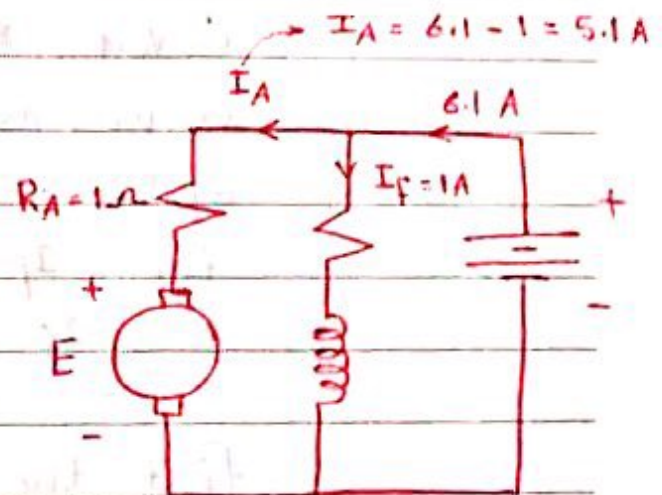 I_A = 6.1 - 1 = 5.1 A
I_A
6.1 A
R_A = 1Ω
I_f = 1A
+
+
E
-
-